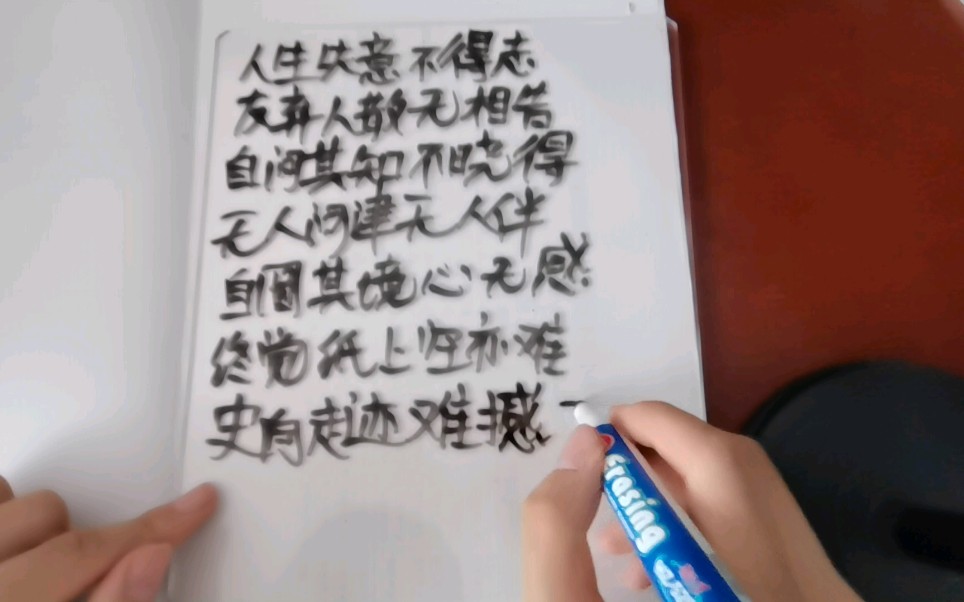 人生失意不得志
友弃人散无相告
自问其知不晓得
无人问津无人伴
自困其境心无感
终觉纸上空亦难
史向走迹难撼一
erasing